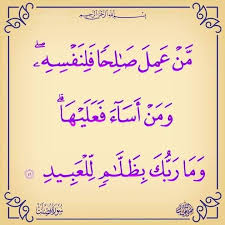 بِسْمِ اللَّهِ الرَّحْمَٰنِ الرَّحِيمِ
مَّنْ عَمِلَ صَٰلِحًا فَلِنَفْسِهِۦۖ
وَمَنْ أَسَآءَ فَعَلَيْهَاۗ
وَمَا رَبُّكَ بِظَلَّٰمٍ لِّلْعَبِيدِ